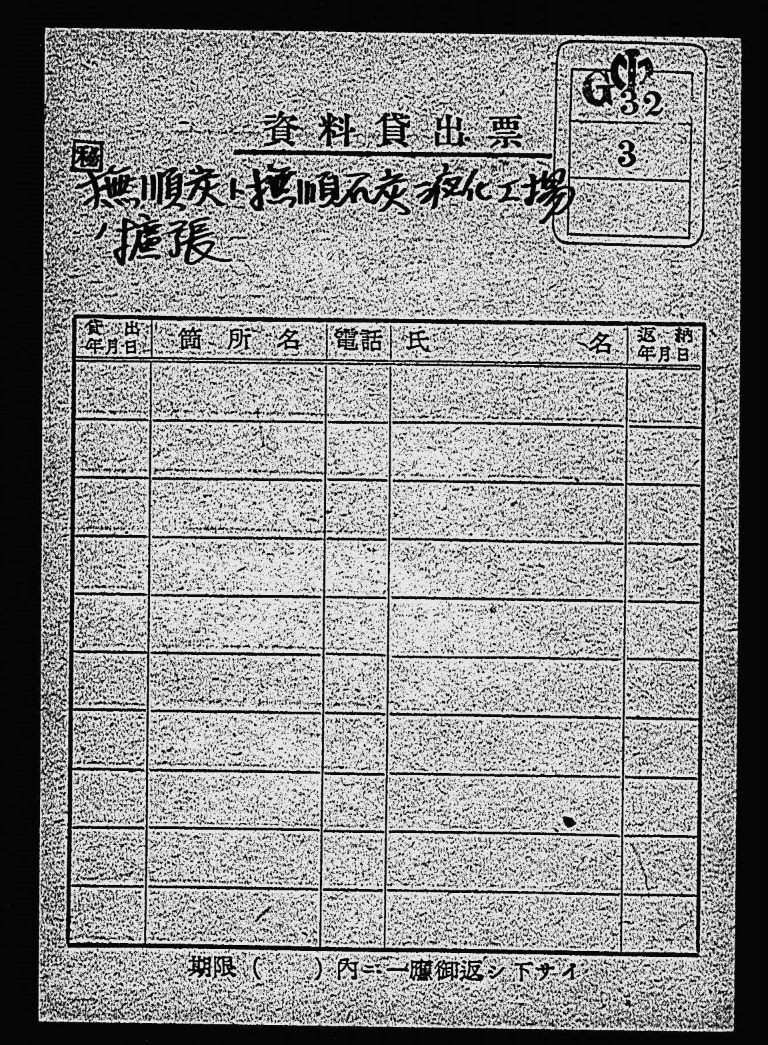 G
32
3
資料貸出票
秘
撫順炭ト撫順石炭液化工場
ノ擴張
貸出年月日 箇所名 電話 氏名 返納年月日
期限（ ）内ニ一應御返シ下サイ